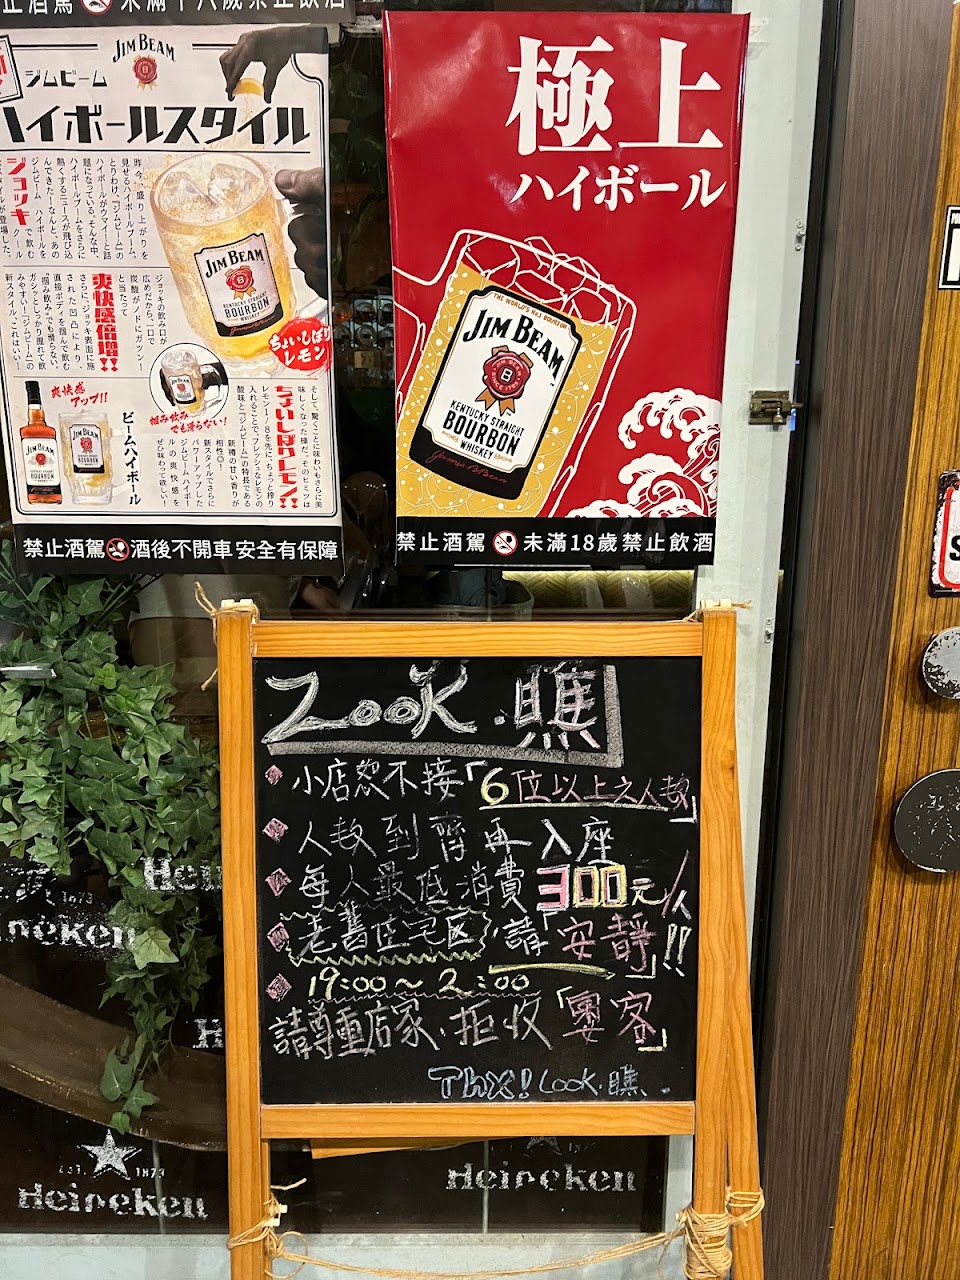 止酒駕 未滿十八歲禁止飲酒
JIM BEAM
ジムビーム
ハイボールスタイル
昨今、盛り上がりを
見せるハイボールブーム。
とりわけ、「ジムビーム」の
ハイボールがウマイ!と話
題になっている。そんな中、
ハイボールブームをさらに
熱くするニュースが飛び込
んできた!なんと、あの
ジムビーム ハイボールを
ジョッキで飲む
クール
スタイルが登場した。
JIM BEAM
KENTUCKY STRAIGHT
BOURBON
WHISKEY
ちょいしぼり
レモン
ジョッキの飲み口が
広めだから、一口で
炭酸がノドにガツン!
と当たって
爽快感倍増!!
さらに、ジョッキ表面に施
された凹凸により、
直接ボディを掴んで飲む
"掴み飲み"でも滑らない。
ガシッとしっかり握れて飲
みやすい!「ジムビーム」の
新スタイル、これはいい!
爽快感
アップ!!
掴み飲み
でも滑らない!
JIM BEAM
BOURBON
ビームハイボール
そして、驚くことに味わいもさらに美
味しくなった様だ。そのヒミツは
ちょいしぼりレモン!!
レモン1/8を先に、ちょっと搾り
入れることで、フレッシュなレモンの
酸味と「ジムビーム」の特長である
新樽の甘い香りが
相性◎!
新スタイルでさらに
パワーアップした
ジムビーム ハイボー
ルの爽快感を
ぜひ味わって欲しい!
禁止酒駕 酒後不開車 安全有保障
極上
ハイボール
THE WORLD'S No.1 BOURBON
JIM BEAM
JIM BEAM
B
SINCE 1795
KENTUCKY STRAIGHT
BOURBON
WHISKEY
禁止酒駕 未滿18歲禁止飲酒
Look.瞧
小店恕不接「6位以上之人数」
人数到齊再入座
每人最低消費300元/人
老舊住宅区,請「安靜」!!
19:00~2:00
請尊重店家,拒收「奧客」
Thx! Look.瞧.
Heineken
1873
Heineken
EST. 1873
Heineken
Heineken